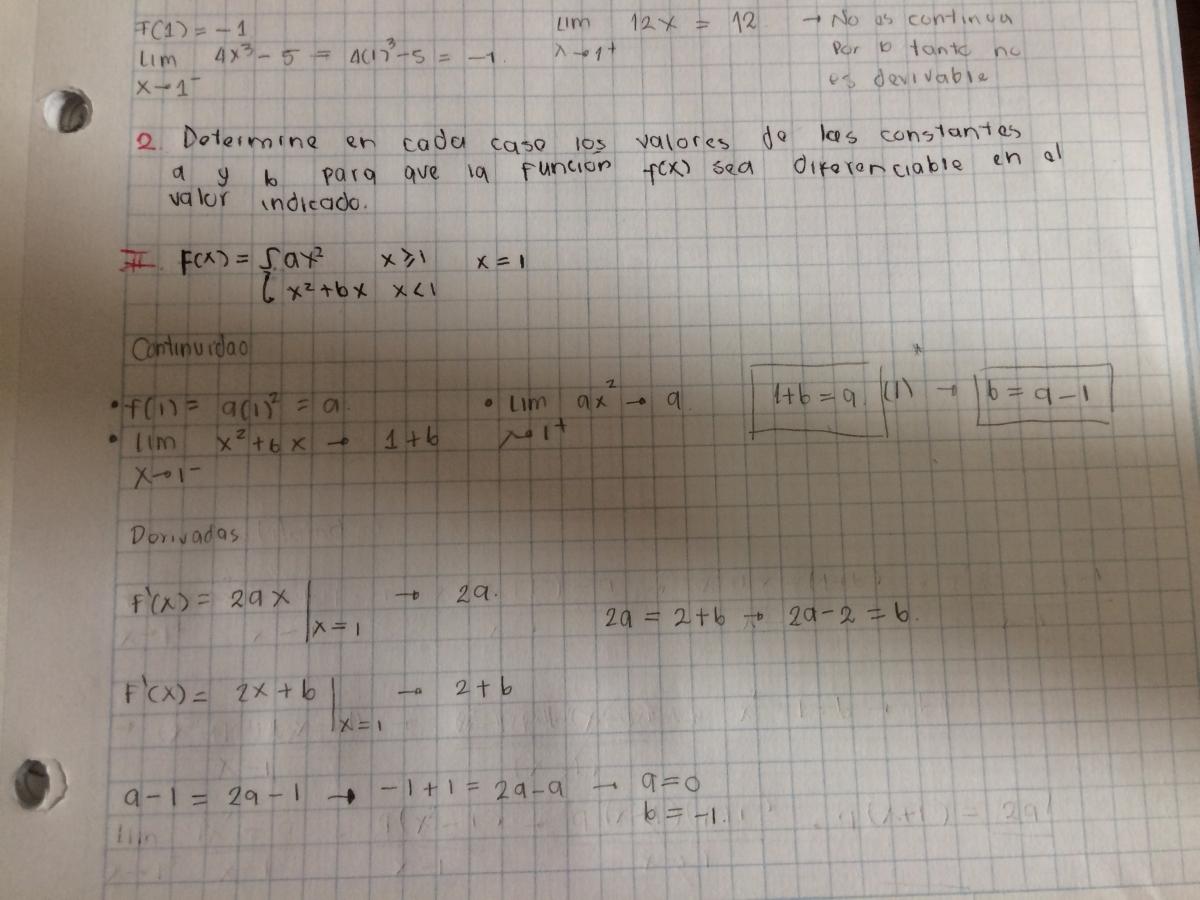 F(1) = -1
lim 4x³ - 5 = 4(1)³ - 5 = -1.
x→1⁻
lim 12x = 12 → No es continua
x→1⁺ por lo tanto no
es derivable
2. Determine en cada caso los valores de las constantes
a y b para que la función f(x) sea diferenciable en el
valor indicado.
II. F(x) = { ax² x ≥ 1 x = 1
x² + bx x < 1
Continuidad
• f(1) = a(1)² = a.
• lim x² + bx → 1 + b
x→1⁻
• lim ax² → a
x→1⁺
1 + b = a (1) * → b = a - 1
Derivadas
f'(x) = 2ax |x=1 → 2a.
2a = 2 + b → 2a - 2 = b.
F'(x) = 2x + b |x=1 → 2 + b
a - 1 = 2a - 1 → -1 + 1 = 2a - a → a = 0
b = -1.
lim